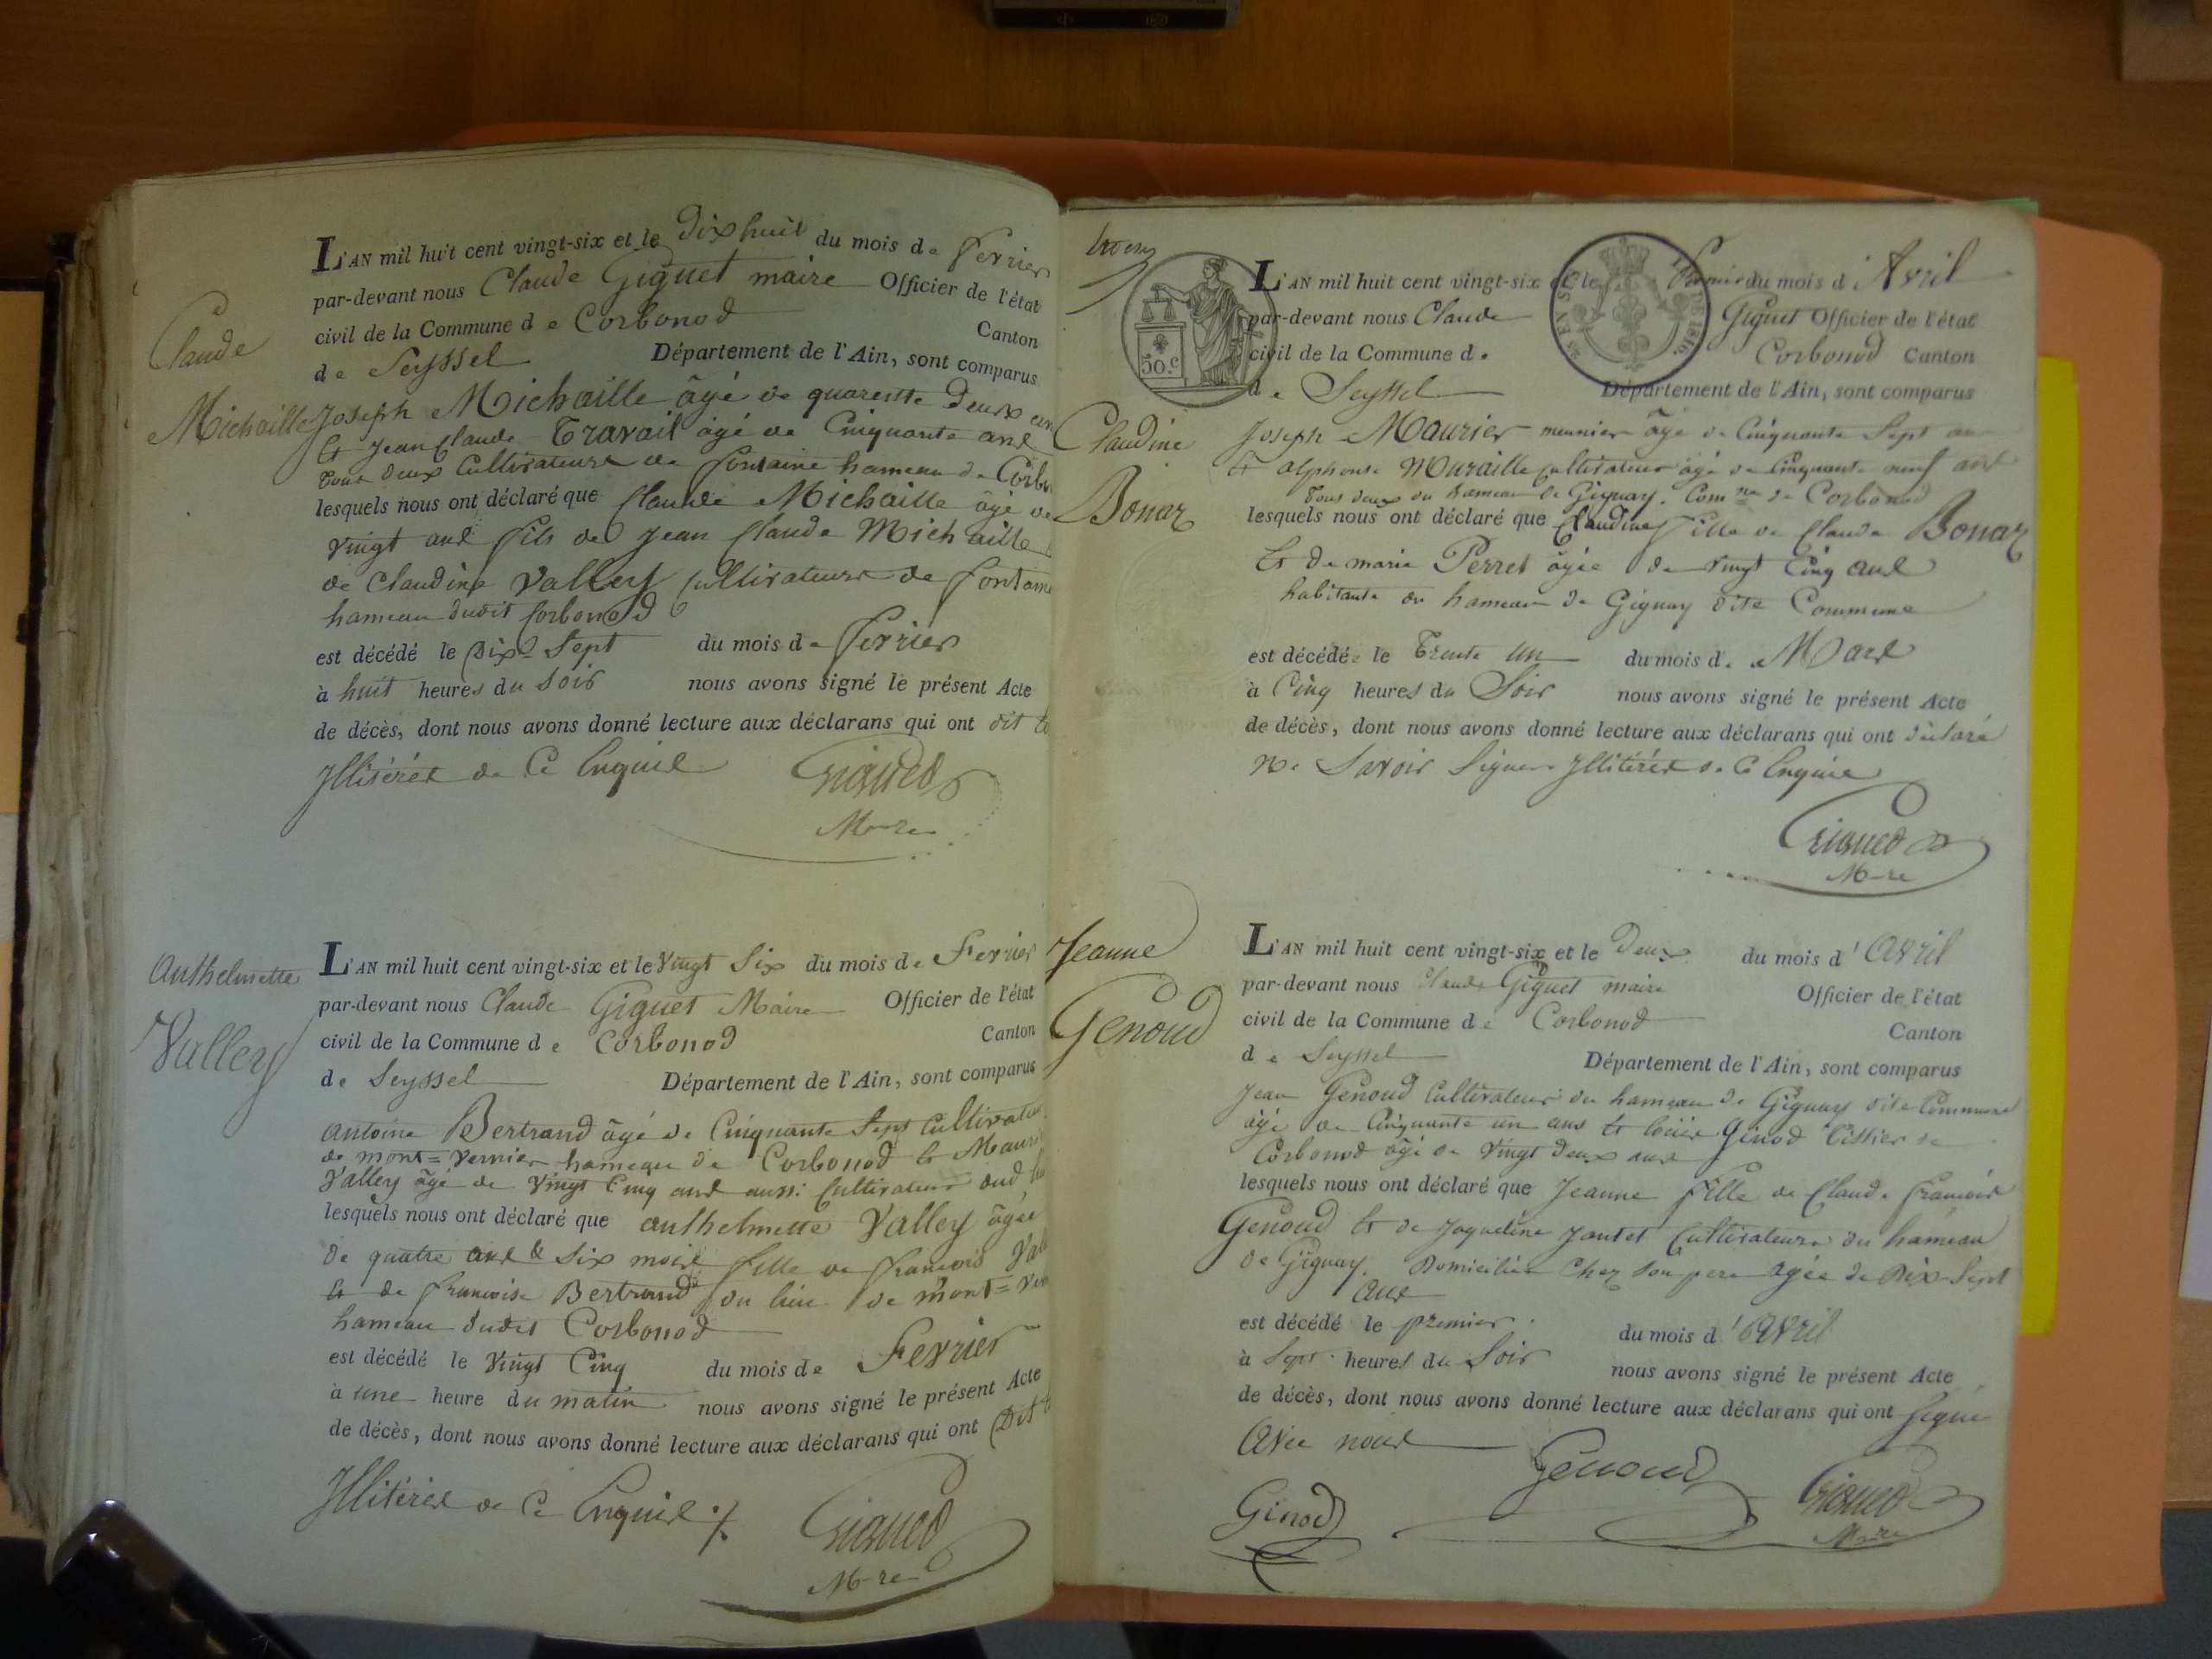 Claude
Michaille
L'AN mil huit cent vingt-six et le dix huit du mois de fevrier
par-devant nous Claude Giguet maire Officier de l'état
civil de la Commune de Corbonod Canton
de Seyssel Département de l'Ain, sont comparus
Joseph Michaille âgé de quarente deux ans
et jean Claude Travail âgé de Cinquante ans
tous deux Cultivateurs de fontaine hameau de Corbo
lesquels nous ont déclaré que Claude Michaille âgé de
vingt ans fils de jean Claude Michaille
de Claudine Valley Cultivateurs de fontaine
hameau dudit Corbonod
est décédé le Dix Sept du mois de fevrier
à huit heures du Soir nous avons signé le présent Acte
de décès, dont nous avons donné lecture aux déclarans qui ont dit
Illitérés de Ce Enquis
Giguet
M-re
Anthelmette
Valley
L'AN mil huit cent vingt-six et le vingt Six du mois de Fevrier
par-devant nous Claude Giguet Maire Officier de l'état
civil de la Commune de Corbonod Canton
de Seyssel Département de l'Ain, sont comparus
antoine Bertrand âgé de Cinquante Sept Cultivateur
de mont=vernier hameau de Corbonod & Mauri
Valley âgé de vingt Cinq ans aussi Cultivateur aud
lesquels nous ont déclaré que anthelmette Valley âgée
de quatre ans & Six mois fille de francois Vall
et de francoise Bertrand du lieu de mont=ver
hameau dudit Corbonod
est décédé le vingt Cinq du mois de Fevrier
à une heure du matin nous avons signé le présent Acte
de décès, dont nous avons donné lecture aux déclarans qui ont Dit
Illitérés de Ce Enquis
Giguet
M-re
50.c
DE 1816.
Claudine
Bonaz
L'AN mil huit cent vingt-six et le Premier du mois d'Avril
par-devant nous Claude Giguet Officier de l'état
civil de la Commune de Corbonod Canton
de Seyssel Département de l'Ain, sont comparus
Joseph Maurier meunier âgé de Cinquante Sept ans
et alphonse Muraille Cultivateur âgé de Cinquante neuf ans
tous deux du hameau de Gignay. Comne de Corbonod
lesquels nous ont déclaré que Claudine fille de Claude Bonaz
et de marie Perret âgée de vingt Cinq ans
habitante du hameau de Gignay dite Commune
est décédée le Trente un du mois de Mars
à Cinq heures du Soir nous avons signé le présent Acte
de décès, dont nous avons donné lecture aux déclarans qui ont déclaré
ne Savoir Signer Illitérés de Ce Enquis
Giguet
M-re
Jeanne
Genoud
L'AN mil huit cent vingt-six et le Deux du mois d'Avril
par-devant nous Claude Giguet maire Officier de l'état
civil de la Commune de Corbonod Canton
de Seyssel Département de l'Ain, sont comparus
Jean Genoud Cultivateur du hameau de Gignay dite Commune
âgé de Cinquante un ans et louis Ginod tissier de
Corbonod âgé de vingt deux ans
lesquels nous ont déclaré que Jeanne fille de Claude francois
Genoud et de Jaqueline Jantet Cultivateurs du hameau
de Gignay. Domiciliée Chez Son pere âgée de Dix-Sept
ans
est décédé le premier du mois d'Avril
à Sept heures du Soir nous avons signé le présent Acte
de décès, dont nous avons donné lecture aux déclarans qui ont Signé
Avec nous
Genoud
Ginod
Giguet
M-re